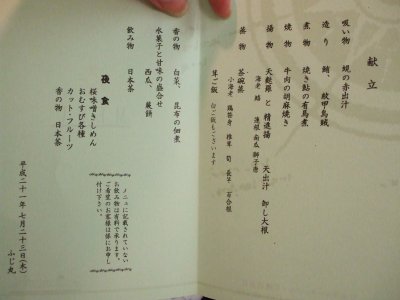 献立
吸い物 蜆の赤出汁
造り 鮪、紋甲烏賊
煮物 焼き鮎の有馬煮
焼物 牛肉の胡麻焼き
揚物 天麩羅と精進揚 天出汁 卸し大根
海老 鱚 蓮根 南瓜 獅子唐
蒸物 茶碗蒸
小海老 鶏笹身 椎茸 筍 長芋 百合根
茸ご飯 白ご飯もございます
香の物 白菜、昆布の佃煮
水菓子と甘味の盛合せ 西瓜、蕨餅
飲み物 日本茶
後食
桜味噌きしめん
おむすび各種
カット・フルーツ
香の物 日本茶
メニューに記載されていない
お飲み物は有料で承ります。
ご希望のお客様は係にお申し
付け下さい。
平成二十一年七月二十三日(木) ふじ丸